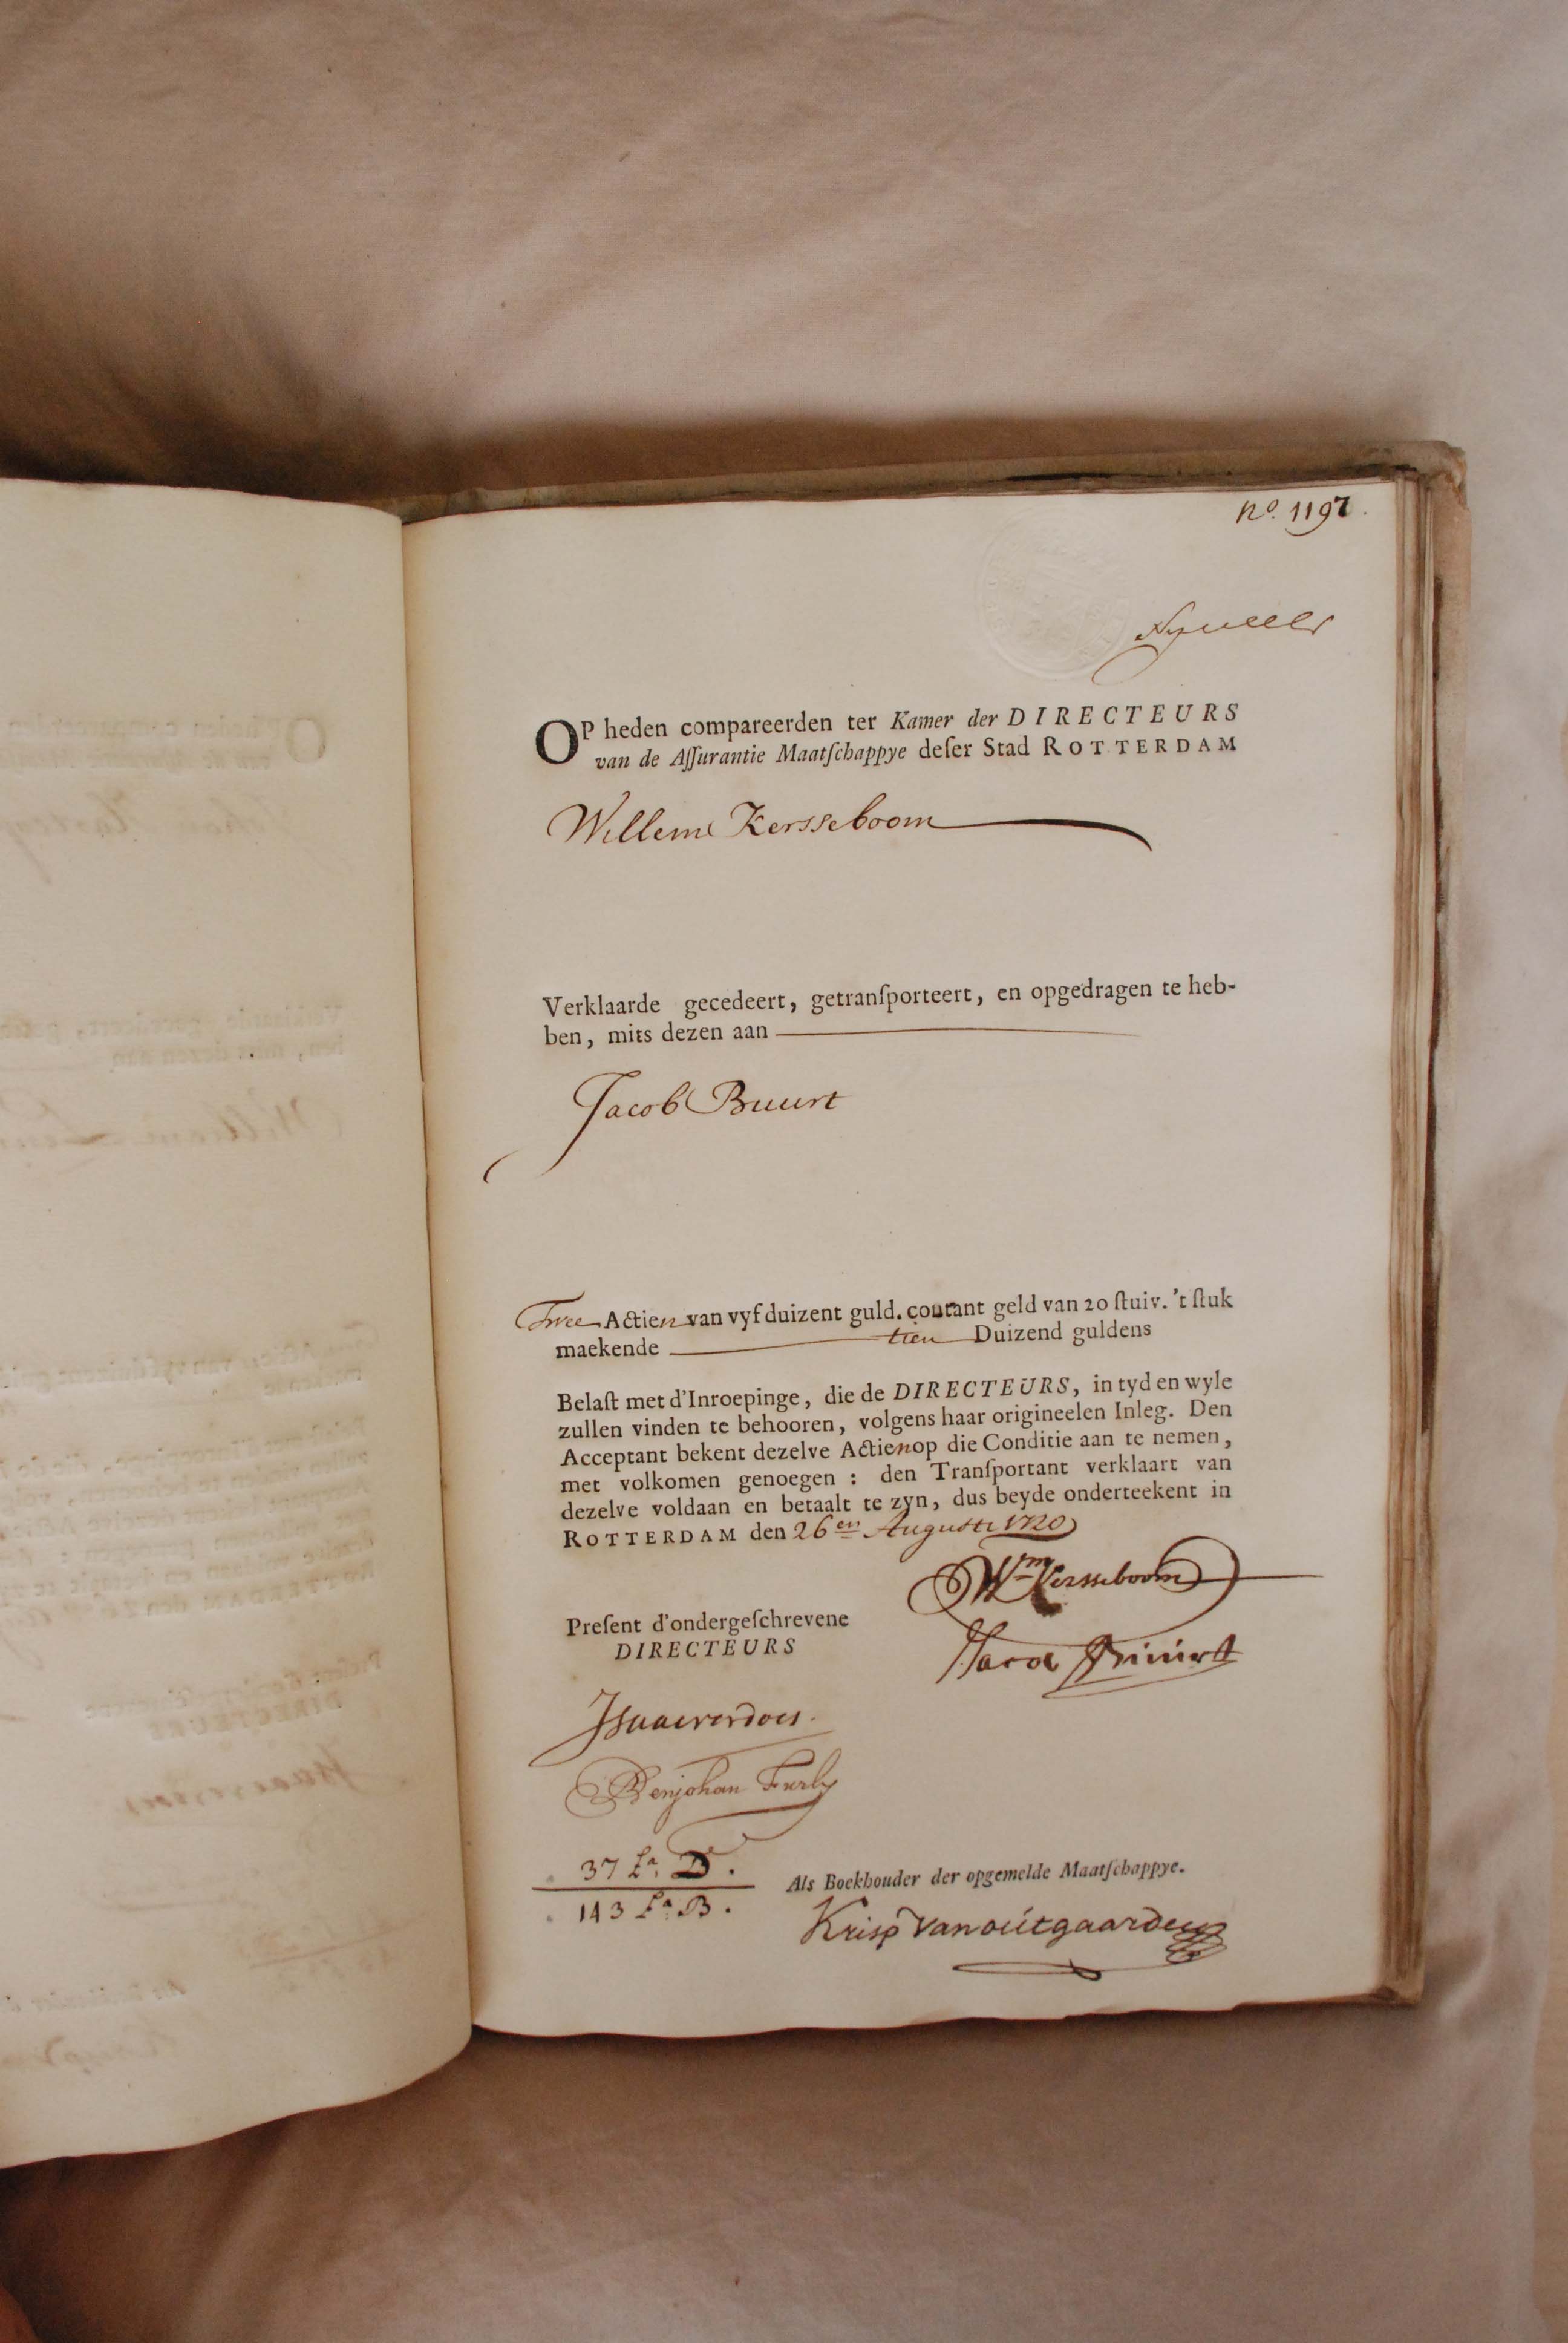 nº. 1197.
OP heden compareerden ter Kamer der DIRECTEURS
van de Aſſurantie Maatſchappye deſer Stad ROTTERDAM
Willem Kersseboom
Verklaarde gecedeert, getranſporteert, en opgedragen te heb-
ben, mits dezen aan
Jacob Buurt
Twee Actien van vyf duizent guld. courant geld van 20 ſtuiv. 't ſtuk
maekende tien Duizend guldens
Belaſt met d'Inroepinge, die de DIRECTEURS, in tyd en wyle
zullen vinden te behooren, volgens haar origineelen Inleg. Den
Acceptant bekent dezelve Actien op die Conditie aan te nemen,
met volkomen genoegen : den Tranſportant verklaart van
dezelve voldaan en betaalt te zyn, dus beyde onderteekent in
ROTTERDAM den 26en Augusti 1720
Wm Kersseboom
Preſent d'ondergeſchrevene
DIRECTEURS
Jacob Buurt
Isaac verdoes.
Benjohan Furly
37 La D.
Als Boekhouder der opgemelde Maatſchappye.
143 La B.
Krisp van outgaarden